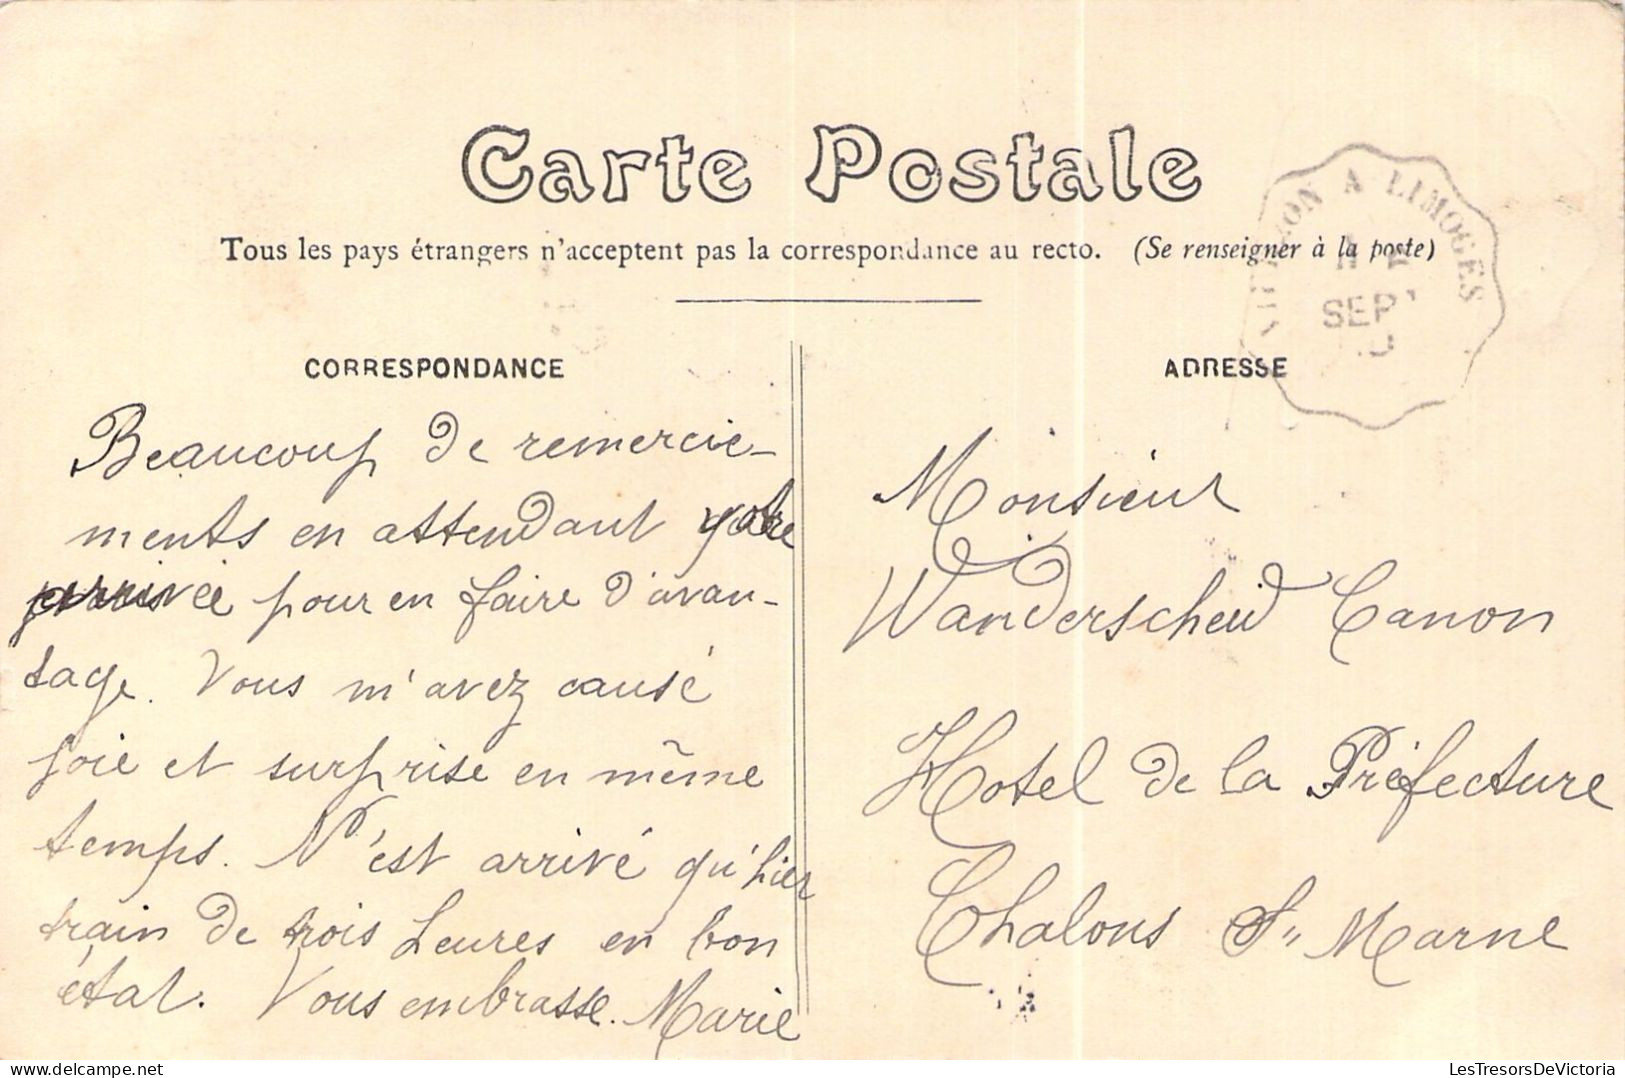 Carte Postale
Tous les pays étrangers n'acceptent pas la correspondance au recto. (Se renseigner à la poste)
CORRESPONDANCE
Beaucoup de remercie-
ments en attendant votre
arrivée pour en faire d'avan-
tage. Vous m'avez causé
joie et surprise en même
temps. N'est arrivé qu'hier
train de trois heures en bon
état. Vous embrasse. Marie
ADRESSE
Monsieur
Wanderscheid Canon
Hotel de la Préfecture
Chalons S" Marne
A LIMOGES
SEPT
LesTresorsDeVictoria